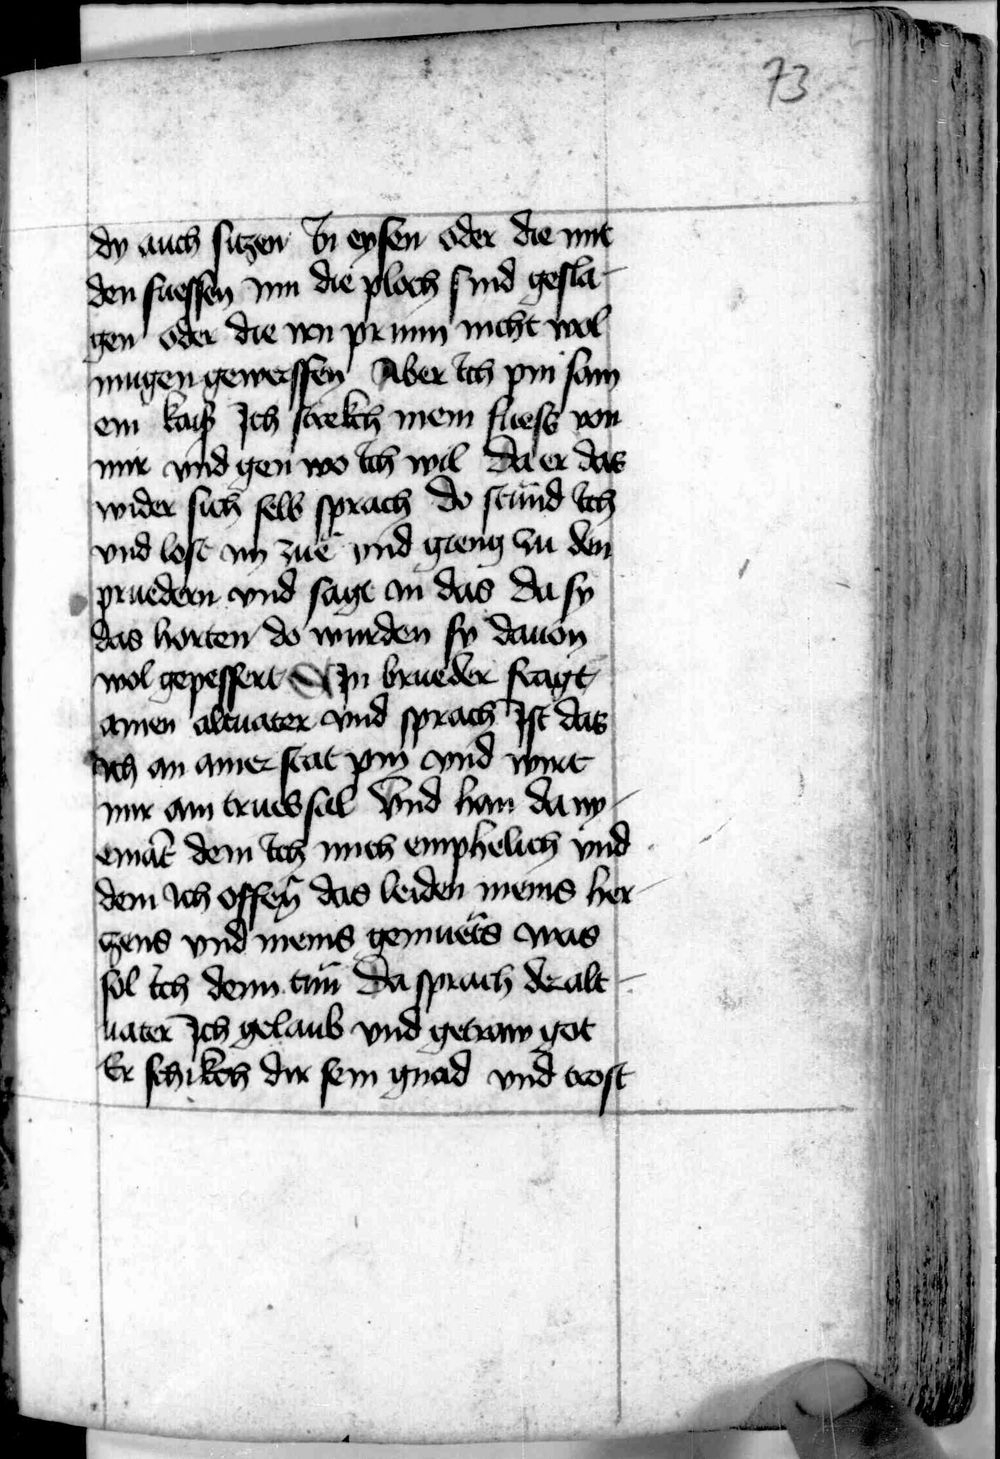 73
dy auch sitzen In eysen oder die mit
den fuessen inn die ploch sind gesla-
gen oder die irn prunn nicht wol
mugen gewerffen Aber ich pin sam
ein Ich strekch mein fuess von
mir vnd gen wo ich wil Da er das
wider sich selb sprach do stund ich
vnd lost im zue vnd gieng zu den
pruedern vnd sagt in das Da sy
das horten do wurden sy dauon
wol gepessert Ain brueder fragt
ainen altuater vnd sprach Ist das
ich an ainer stat pin vnd wirt
mir ain truebsal Vnd han da ny-
emāt dem ich mich emphelich vnd
dem ich offen das leiden meins her-
zens vnd meins gemuets was
sol ich denn tun Da sprach der alt-
uater Ich gelaub vnd getraw got
Er schikch dir sein gnad vnd trost